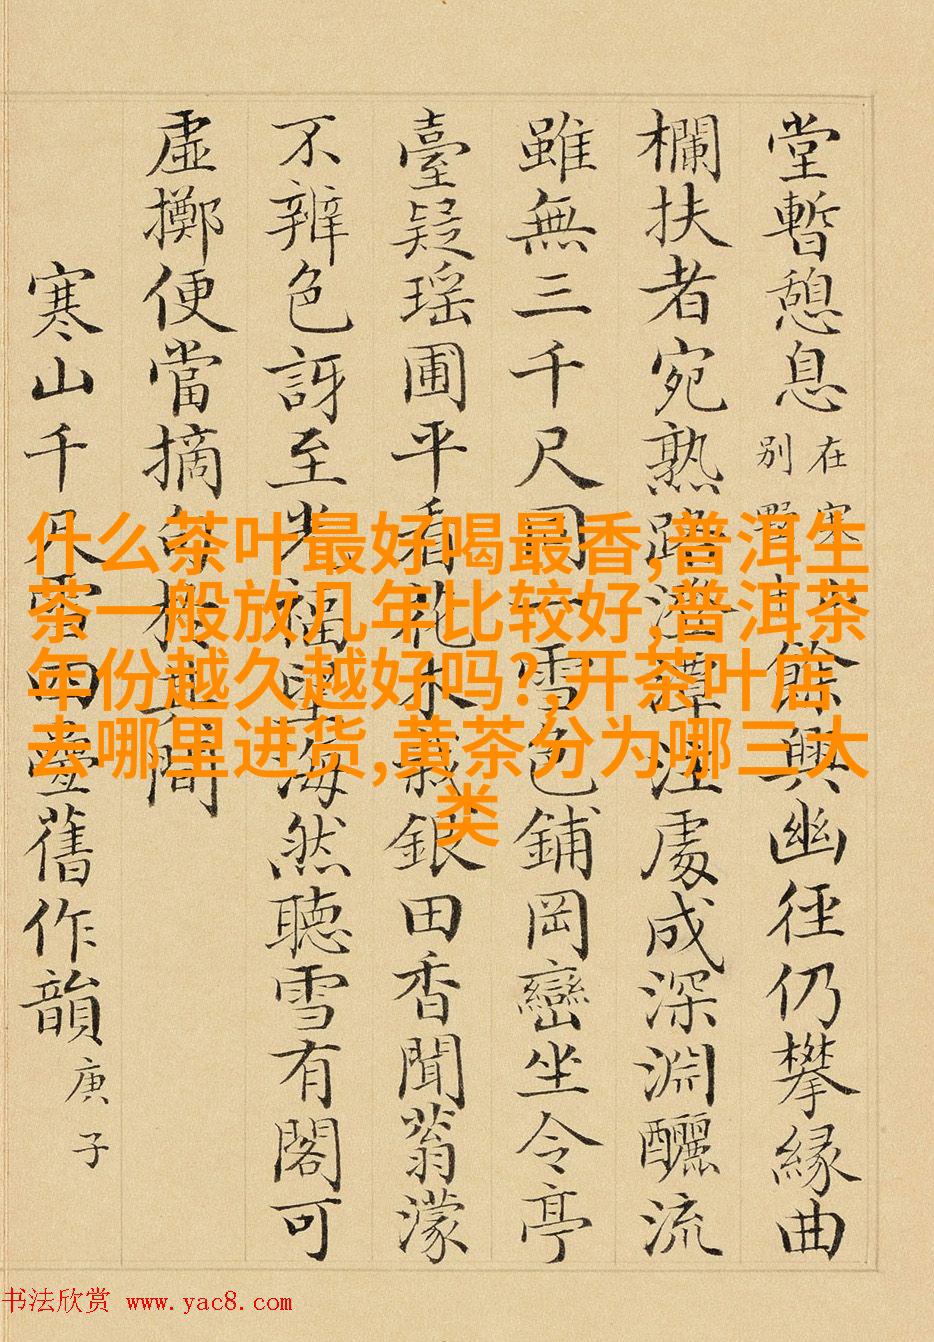 堂暫憩息
在寒
別墅
餘興幽徑仍攀緣曲
欄扶者宛熟踏潭注處成深淵釃流
雖無三千尺同雪色鋪岡巒坐令亭
臺疑瑤圃平看花木銀田香聞蓊濛
不辨色訝至光福海然聽雪有閣可
虛擲便當摘句於其間
寒山千尺雪四疊舊作韻 庚子
什么茶叶最好喝最香,普洱生
茶一般放几年比较好,普洱茶
年份越久越好吗?,开茶叶店
去哪里进货,黄茶分为哪三大
类
书法欣赏 www.yac8.com